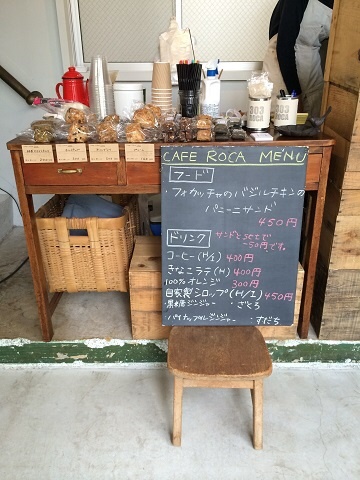 CAFE ROCA MENU
フード
・フォカッチャのバジルチキンの
パニーニサンド
450円
ドリンク
サンドとSETで
-50円です。
コーヒー(H/I) 400円
きなこラテ(H) 400円
100%オレンジ 300円
自家製シロップ(H/I) 450円
・黒糖ジンジャー ・ざくろ
・パイナップルジンジャー ・すだち
303
ROCA